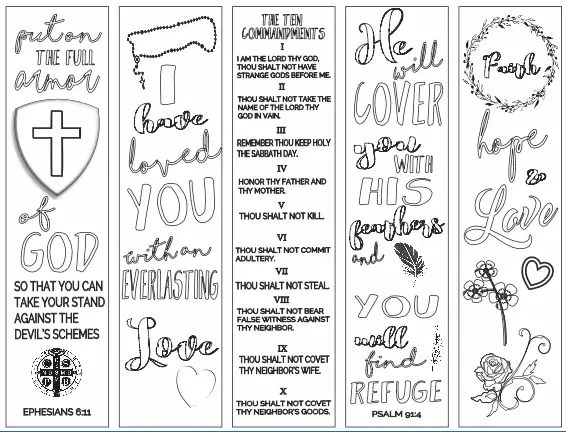 put on
THE FULL
armor
of
GOD
SO THAT YOU CAN
TAKE YOUR STAND
AGAINST THE
DEVIL'S SCHEMES
EPHESIANS 6:11
I
have
loved
YOU
with an
EVERLASTING
Love
THE TEN
COMMANDMENTS
I
I AM THE LORD THY GOD,
THOU SHALT NOT HAVE
STRANGE GODS BEFORE ME.
II
THOU SHALT NOT TAKE THE
NAME OF THE LORD THY
GOD IN VAIN.
III
REMEMBER THOU KEEP HOLY
THE SABBATH DAY.
IV
HONOR THY FATHER AND
THY MOTHER.
V
THOU SHALT NOT KILL.
VI
THOU SHALT NOT COMMIT
ADULTERY.
VII
THOU SHALT NOT STEAL.
VIII
THOU SHALT NOT BEAR
FALSE WITNESS AGAINST
THY NEIGHBOR.
IX
THOU SHALT NOT COVET
THY NEIGHBOR'S WIFE.
X
THOU SHALT NOT COVET
THY NEIGHBOR'S GOODS.
He
will
COVER
you
WITH
HIS
feathers
and
YOU
will
find
REFUGE
PSALM 91:4
Faith
hope
&
Love